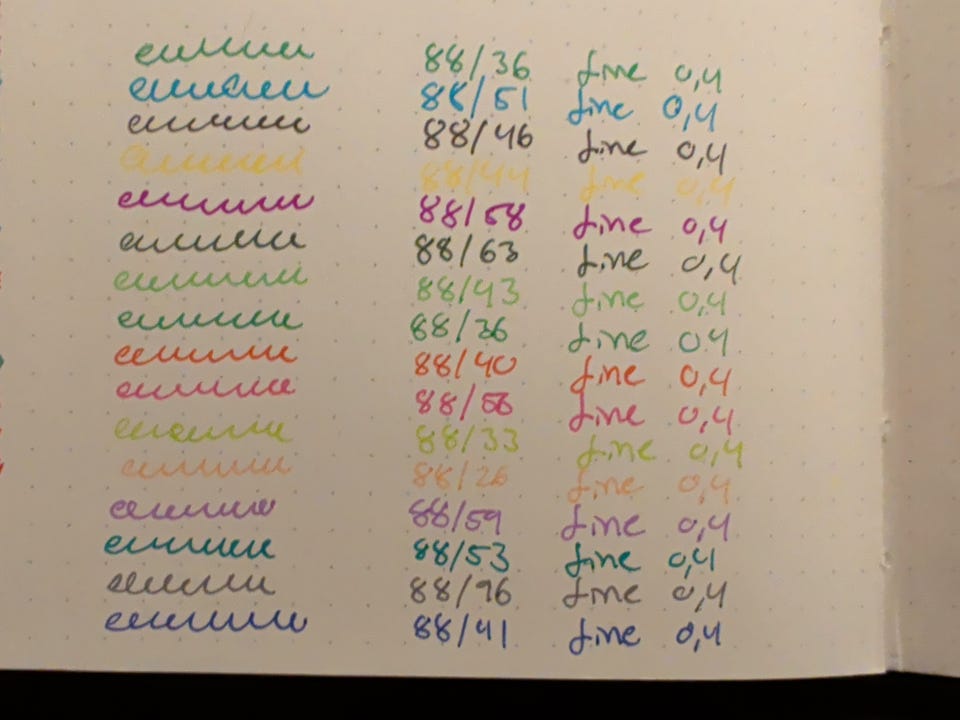 88/36 fine 0,4
88/51 fine 0,4
88/46 fine 0,4
88/44 fine 0,4
88/58 fine 0,4
88/63 fine 0,4
88/43 fine 0,4
88/36 fine 04
88/40 fine 0,4
88/56 fine 0,4
88/33 fine 0,4
88/26 fine 0,4
88/59 fine 0,4
88/53 fine 0,4
88/96 fine 0,4
88/41 fine 0,4